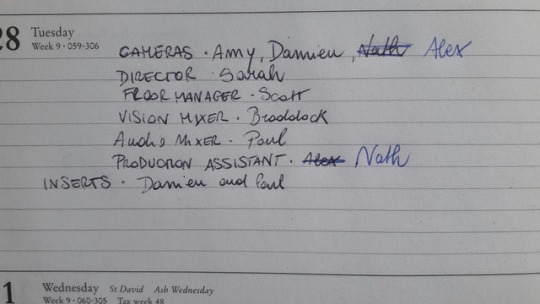 28 Tuesday
Week 9 · 059-306
CAMERAS · Amy, Damien, Nath Alex
DIRECTOR · Sarah
FLOOR MANAGER · Scott
VISION MIXER · Braddock
Audio MIXER · Paul
PRODUCTION ASSISTANT · Alex Nath
INSERTS · Damien and Paul
1 Wednesday St David Ash Wednesday
Week 9 · 060-305 Tax week 48